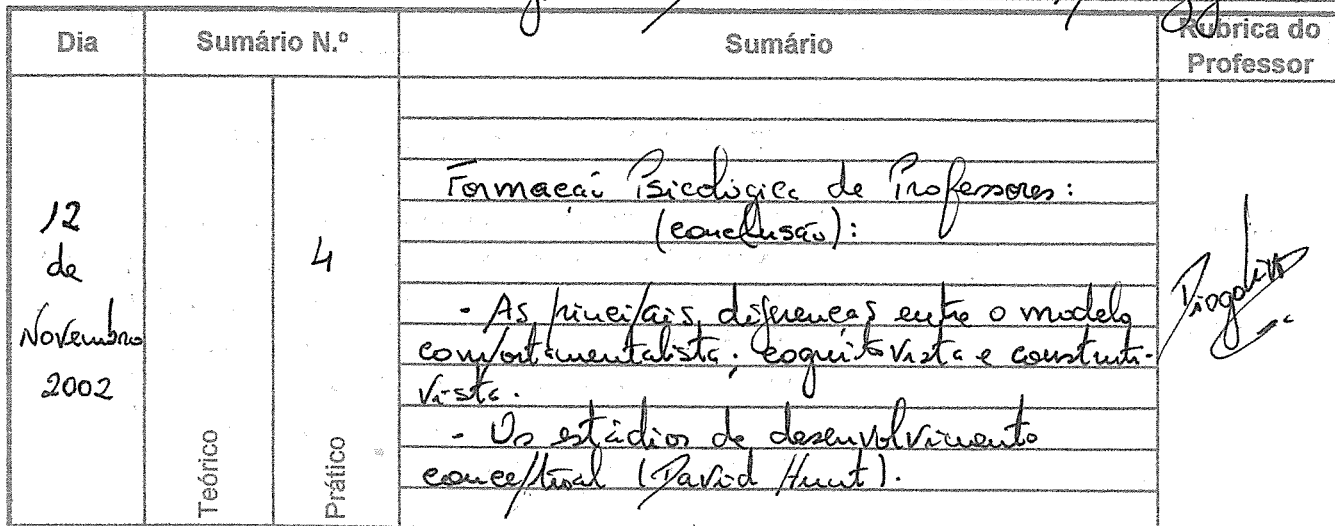 Dia Sumário N.º Sumário Rubrica do Professor
12
de
Novembro
2002
Teórico
4
Prático
Formação Psicológica de Professores:
(conclusão):
- As principais diferenças entre o modelo
comportamentalista, cognitivista e construti-
vista.
- Os estádios de desenvolvimento
conceptual (David Hunt).